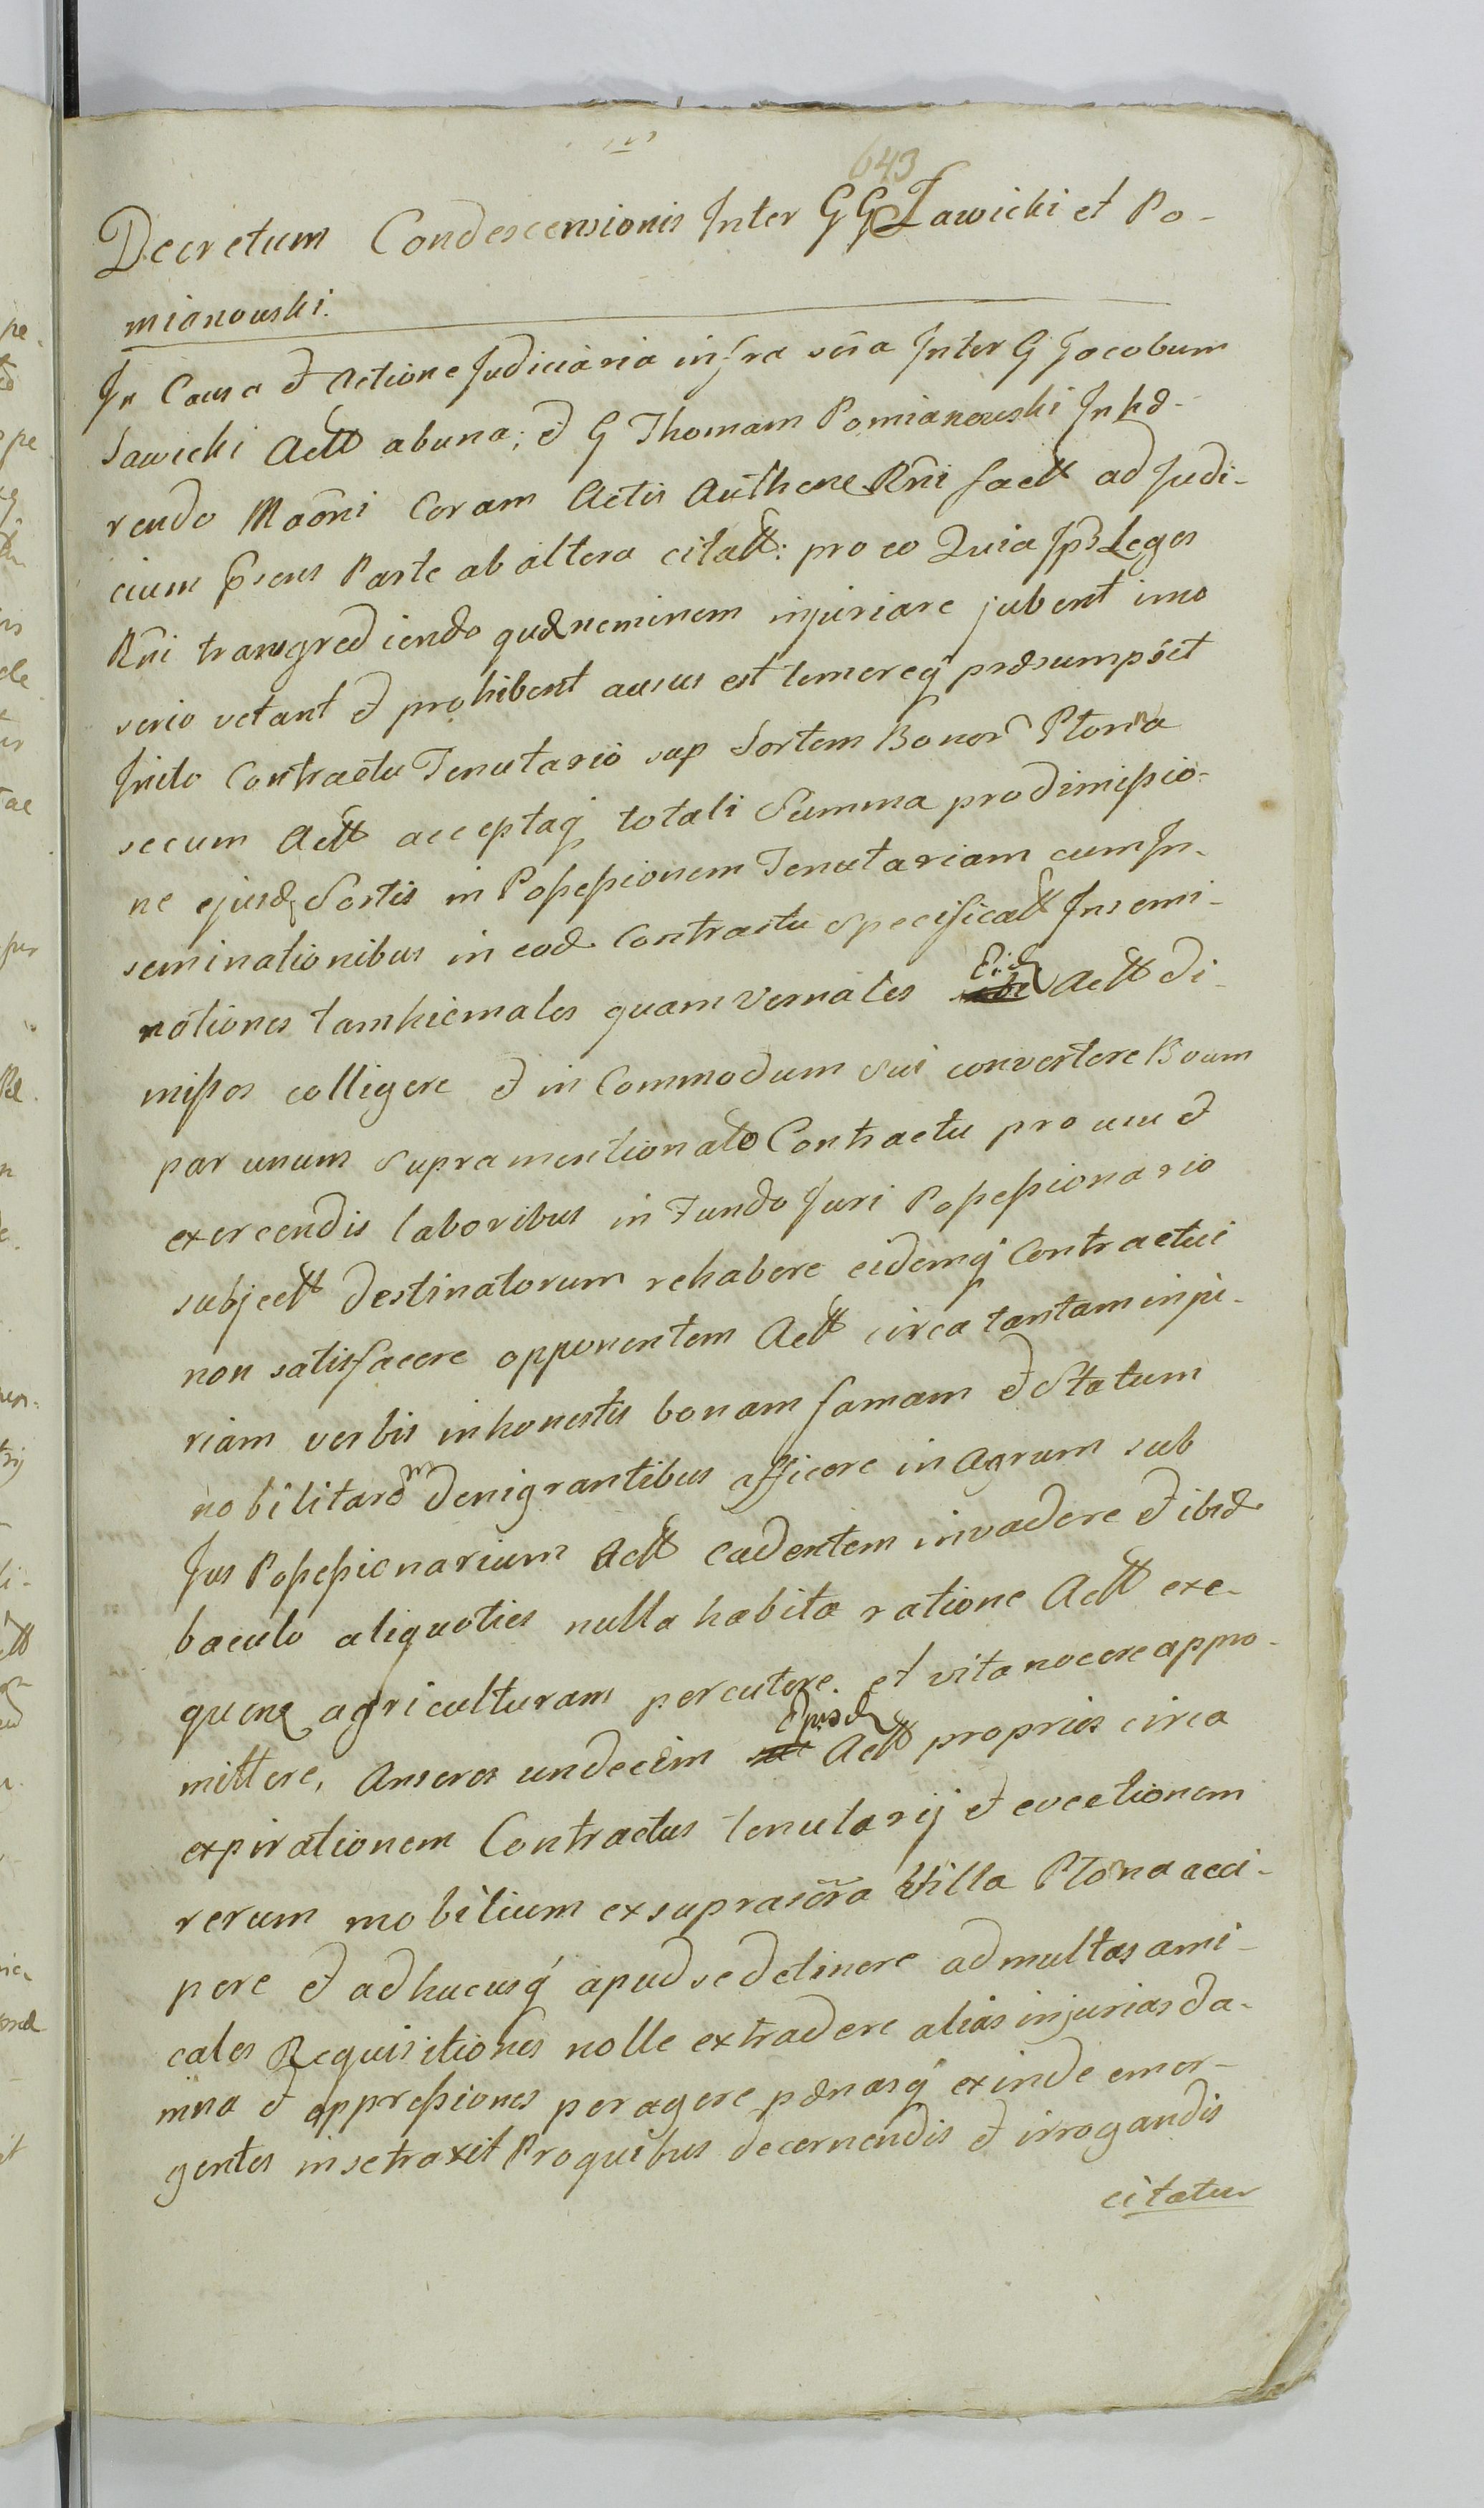 643
Decretum Condescensionis Inter GG Sawicki et Po-
mianowski.
In Causa et Actione Judiciaria infra scra Inter G Jacobum
Sawicki Actt abuna; et G Thomam Pomianowski Inhæ-
rendo Maõni Coram Actis Authenc Rñi factt ad Judi-
cium Psens Parte ab altera citatt: pro eo Quia Ips Leges
Rñi transgrediendo quæ neminem injuriare jubent imo
serio vetant et prohibent ausus est temereq præsumpsit
Inito Contractu Tenutario sup Sortem Bonor Ptoria
secum Actt acceptaq totali Summa pro dimissio-
ne ejusd Sortis in Possessionem Tenutariam cum In-
seminationibus in eod Contractu Specificatt Insemi-
notiones tam hiemales quam vernales Eid Actt di-
missos colligere et in Commodum sui convertere Boum
par unum supramentionato Contractu pro usu et
exercendis laboribus in Fundo Juri Possessionario
subjectt destinatorum rehabere eidemq Contractui
non satisfacere opponentem Actt circa tantam inju-
riam verbis inhonestis bonam famam et Statum
nobilitarem denigrantibus afficere in agrum sub
Jus Possessionarium Actt cadentem invadere et ibid
baculo aliquoties nulla habita ratione Actt exe-
quens agriculturam percutere. et vita nocere appro-
mittere, Anseres undecim Ejusd Actt proprios circa
expirationem Contractus tenutarij et evectionem
rerum mobilium ex suprascra Villa Ptona acci-
pere et adhucusq apud se detinere ad multas ami-
cales Requisitiones nolle extradere alias injurias da-
mna et oppressiones peragere pænasq exinde emer-
gentes in se traxit Pro quibus decernendis et irrogandis
citatur